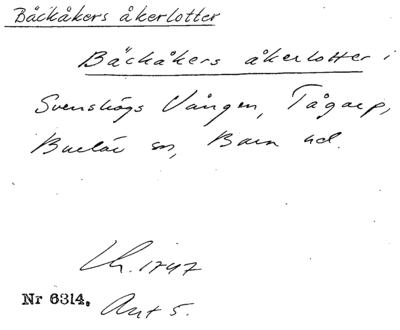 Bäckåkers åkerlotter
Bäckåkers åkerlotter i
Svenskögs Vången, Tågarp,
Burlöv sn, Bara hd.
Lh. 1747
Nr 6314. Akt 5.